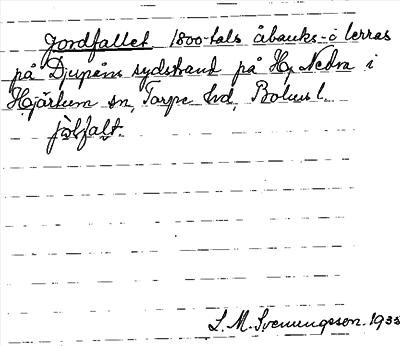 Jordfallet 1800-tals åbanks-o terras
på Djupåns sydstrand på Hg Nedra i
Hjärtum sn, Torpe hd, Bohus l.
L. M. Svenungsson. 1935